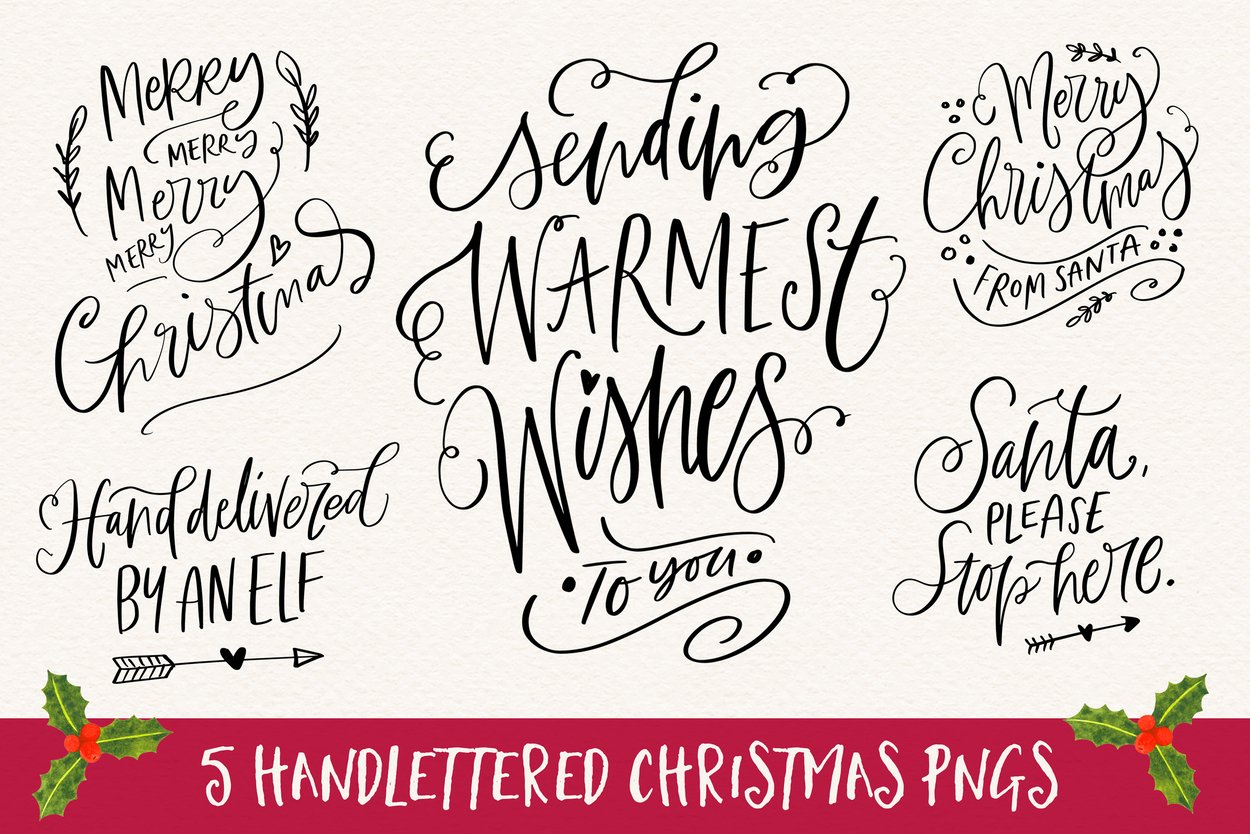 Merry
MERRY
Merry
MERRY
Christmas
Sending
WARMEST
Wishes
To you
Merry
Christmas
FROM SANTA
Hand delivered
BY AN ELF
Santa,
PLEASE
Stop here.
5 HANDLETTERED CHRISTMAS PNGS